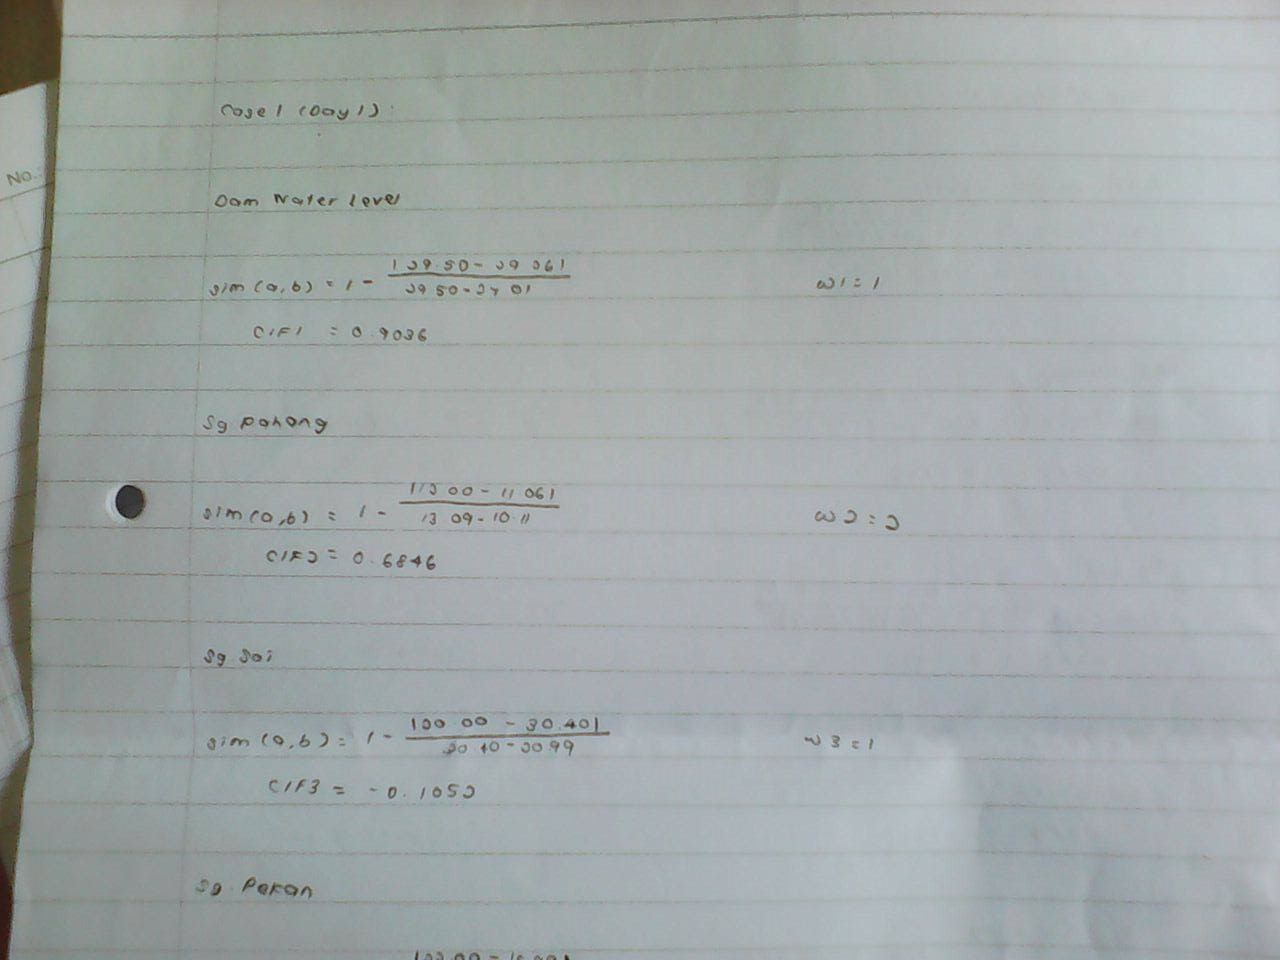 No.
Case 1 (Day 1)
Dam Water Level
sim(a,b) = 1 - |29.50 - 29.26|
29.50 - 27.01
w1 = 1
CIF1 = 0.9036
Sg Pahang
sim(a,b) = 1 - |12.00 - 11.06|
13.09 - 10.11
w2 = 2
CIF2 = 0.6846
Sg Soi
sim(a,b) = 1 - |20.00 - 30.40|
30.40 - 20.99
w3 = 1
CIF3 = -0.1052
Sg. Pekan